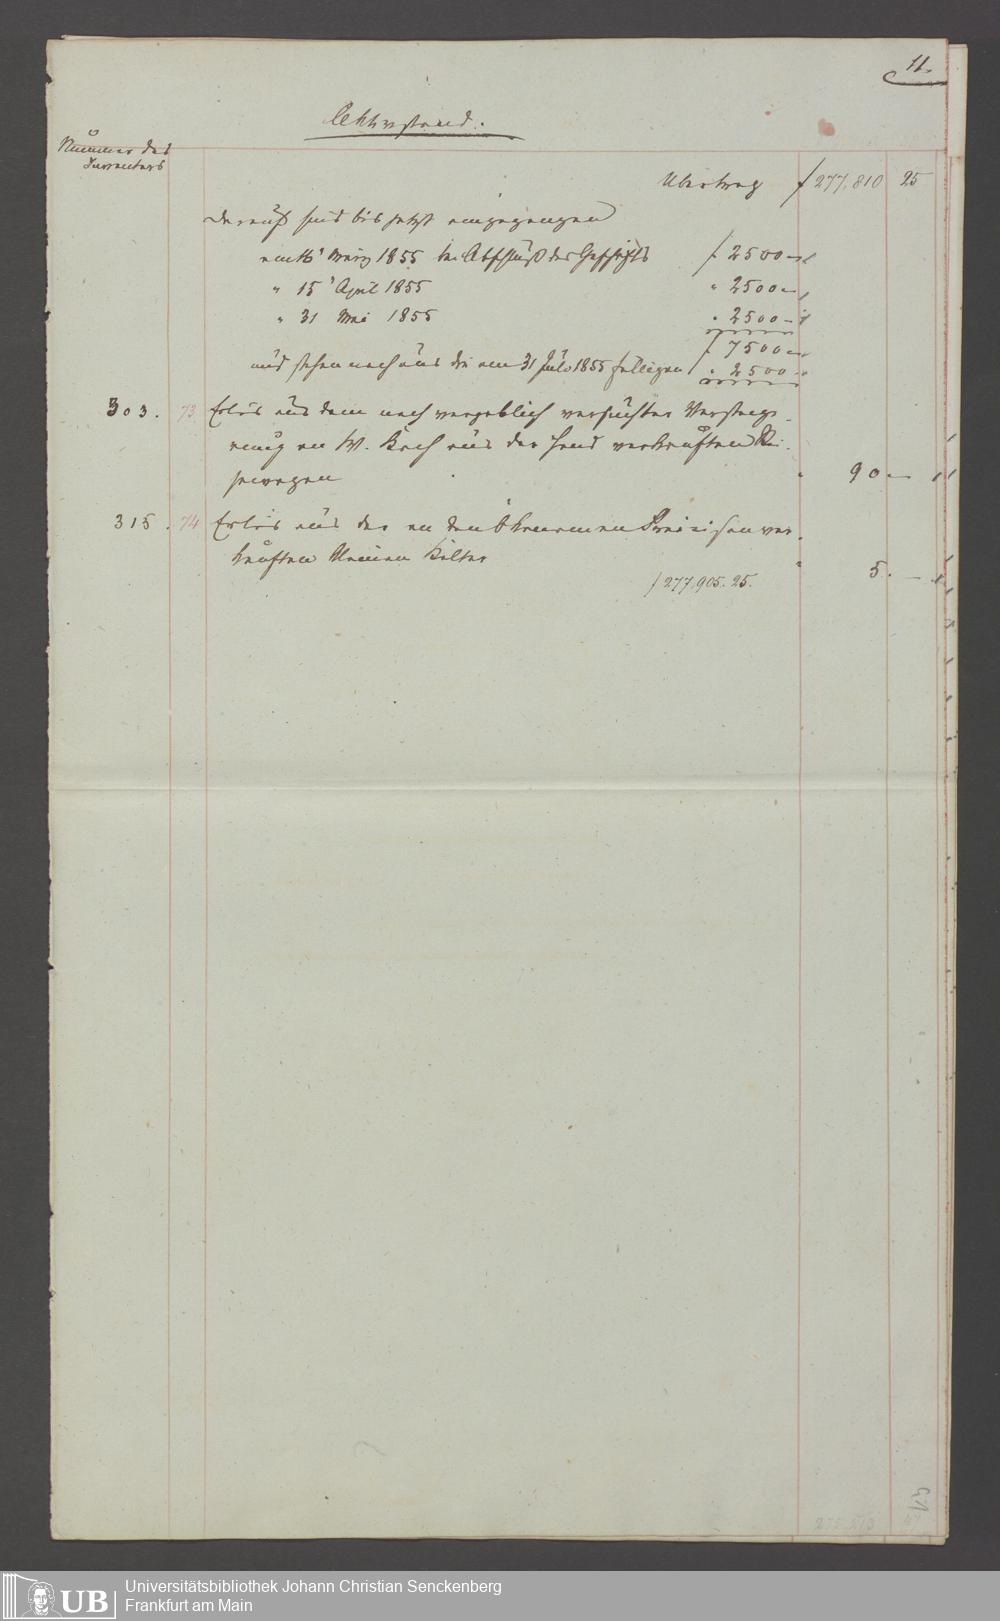 11.
Aktivstand.
Nummer des
Inventars
Uebertrag f 277,810 25
Darauf sind bis jetzt eingegangen
am 16' März 1855 bei Abschluß des Geschäfts f 2500 –
" 15' April 1855 " 2500 –
" 31 Mai 1855 " 2500 –
f 7500 –
und stehen noch aus die am 31 July 1855 fälligen " 2500 –
303. 73 Erlös aus dem nach vergeblich versuchter Versteige-
rung an W. Koch aus der Hand verkauften Rei-
sewagen " 90 –
315. 74 Erlös aus der an den Oekonomen ver-
kauften kleinen Kelter " 5. –
f 277,905. 25.
Universitätsbibliothek Johann Christian Senckenberg
Frankfurt am Main
UB